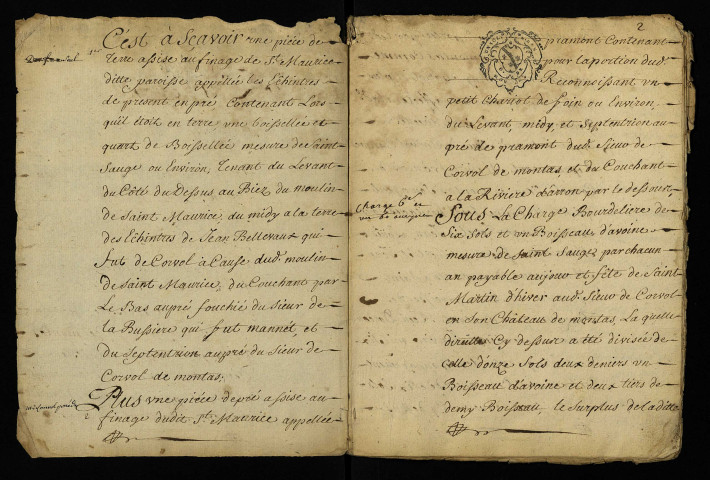 C'est à Sçavoir une pièce de
terre assise au finage de St. Maurice
ditte paroisse appellée les Echintres
de present en pré Contenant Lors
quil étoit en terre une boissellée et
quart de Boissellée mesure de Saint
Sauge ou Environ, Tenant du Levant
du Côté du Dessus au Biez du moulin
de Saint Maurice, du midy a la terre
des Echintres de Jean Bellevaux qui
fut de Corvol à Cause dud. moulin
de Saint Maurice, du Couchant par
Le Bas au pré fouchié du Sieur de
la Bussiere qui fut mannet, et
du Septentrion au pré du Sieur de
Corvol de montas,
Plus une pièce de pré assise au
2
finage dudit St. Maurice appellée
2
pramont Contenant
pour la portion dud.
Reconnoissant un
petit Chariot de foin ou Environ,
du Levant, midy, et Septentrion au
pré de pramont dud. Sieur de
Corvol de montas, et du Couchant
a la Riviere d'arron par le dessous,
Charge 6s. et
un Bo. avoine
Sous La Charge Bourdeliere de
Six Sols et un Boisseau d'avoine
mesure de Saint Sauge par chacun
an payable au jour et fête de Saint
Martin d'hiver aud. Sieur de Corvol
en Son Château de montas, La quelle
directte Cy dessus a été divisée de
Celle d'onze Sols deux deniers un
Boisseau d'avoine et deux tiers de
demy Boisseau, le Surplus de laditte